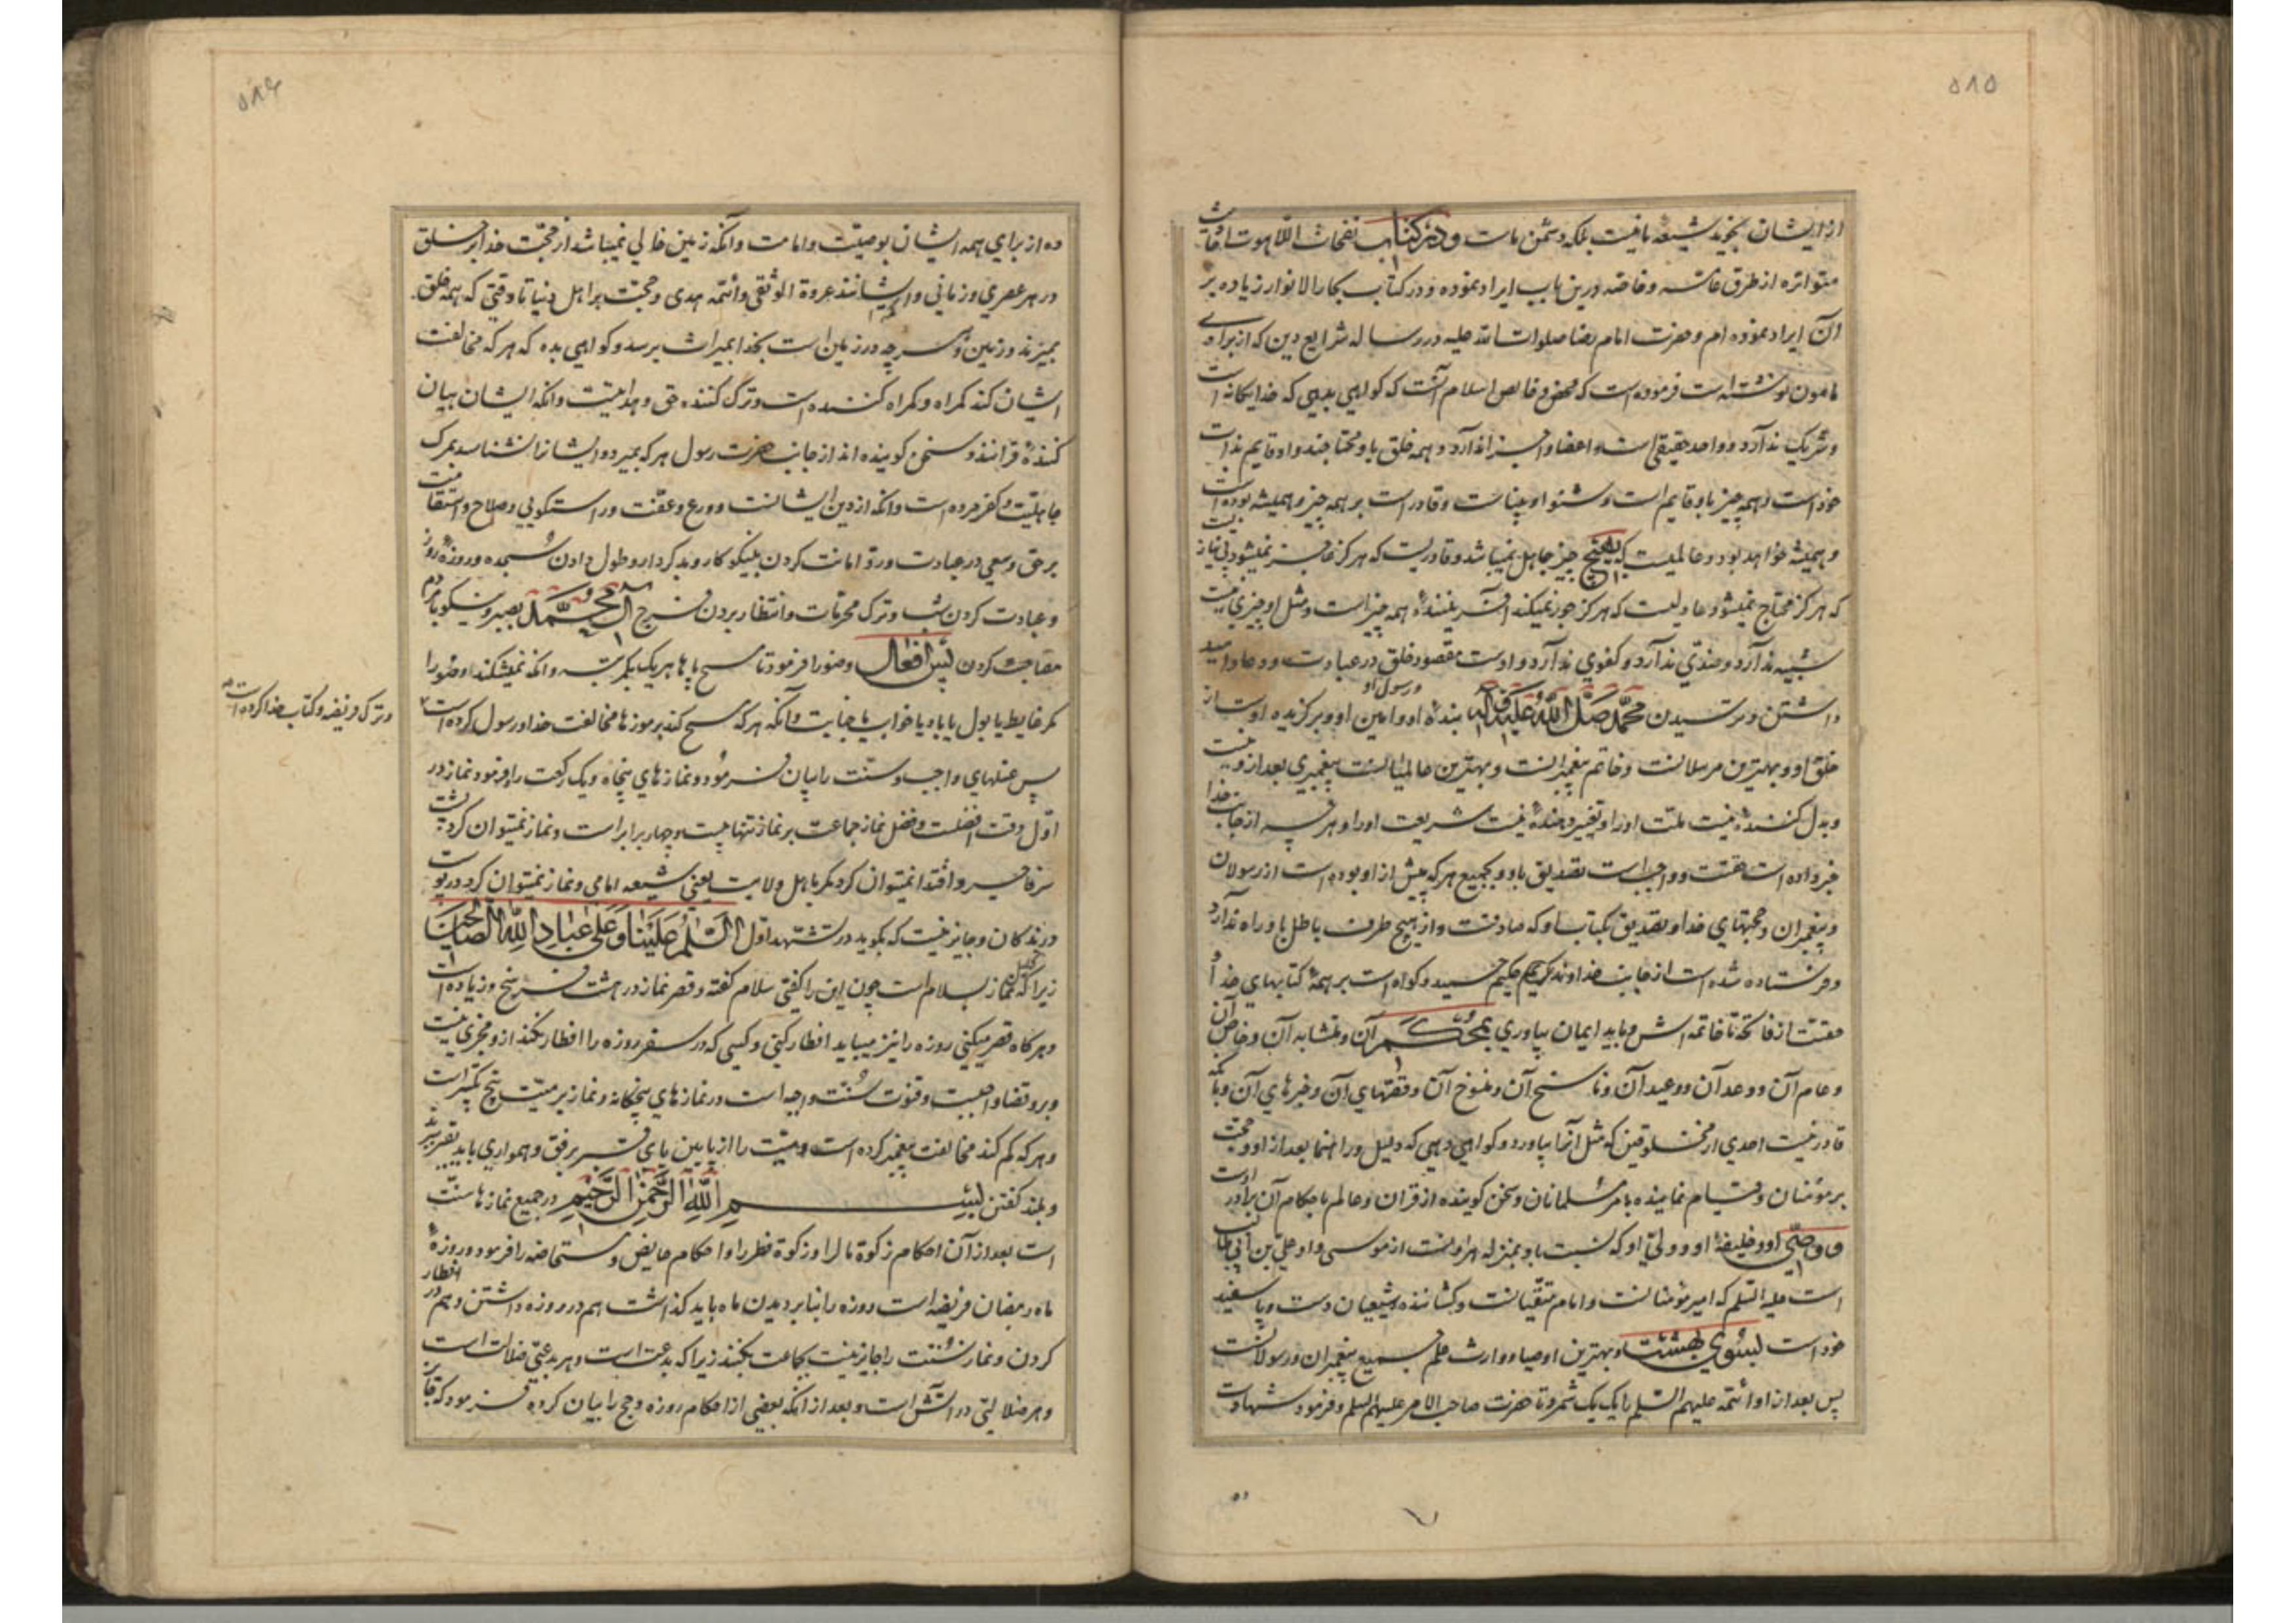 ۵۸۵
از ایشان بجوید شیعهٔ ما نیست بلکه دشمن ماست و در کتاب نفحات اللاهوت احادیث
متواتره از طرق عامه و خاصه درین باب ایراد نموده و در کتاب بحار الانوار زیاده بر
آن ایراد نموده ام و حضرت امام رضا صلوات الله علیه در رساله شرایع دین که از برای
مامون نوشته است فرموده است که محض و خالص اسلام آنست که گواهی بدهی که خدا یگانه است
و شریک ندارد و واحد حقیقی است و اعضا و اجزا ندارد و همه خلق باو محتاجند و او قایم بذات
خود است و همه چیز باو قایم است و شنوا و بیناست و قادر است بر همه چیز و همیشه بوده است
و همیشه خواهد بود و عالمیست که بهیچ چیز جاهل نمیباشد و قادریست که هرگز عاجز نمیشود بی نیازیست
که هرگز محتاج نمیشود عادلیست که هرگز جور نمیکند آفرینندهٔ همه چیز است و مثل او چیزی نیست
شبیه ندارد و ضدی ندارد و کفوی ندارد و اوست مقصود خلق در عبادت و دعا و امید
داشتن و ترسیدن محمد صلی الله علیه و آله بندهٔ او و رسول او و امین او و برگزیده اوست از
خلق او و بهترین مرسلانست و خاتم پیغمبرانست و بهترین عالمیانست پیغمبری بعد ازو نیست
و بدل کننده نیست ملت او را و تغییر دهنده نیست شریعت او را و هرچه از جانب خدا
خبر داده است حقست و واجبست تصدیق باو و بجمیع هر که پیش از او بوده است از رسولان
و پیغمبران و حجتهای خدا و تصدیق بکتاب او که صادقست و از هیچ طرف باطل باو راه ندارد
و فرستاده شده است از جانب خداوند کریم حکیم حمید و گواه است بر همهٔ کتابهای خدا و
حقست از فاتحه تا خاتمه اش و باید ایمان بیاوری بمحکم آن و متشابه آن و خاص آن
و عام آن و وعد آن و وعید آن و ناسخ آن و منسوخ آن و قصهای آن و خبرهای آن و بآنکه
قادر نیست احدی از مخلوقین که مثل آنرا بیاورد و گواهی دهی که دلیل و راهنما بعد از او و حجت
بر مؤمنان و قیام نماینده بامر مسلمانان و سخن گوینده از قرآن و عالم باحکام آن برادر اوست
و وصی او و خلیفهٔ او و ولی او که نسبت باو بمنزله هرونست از موسی و او علی بن ابی طالب
است علیه السلم که امیر مؤمنانست و امام متقیانست و کشاننده شیعیان دست و پا سفید
خود است بسوی بهشت و بهترین اوصیا و وارث علم جمیع پیغمبران و رسولانست
پس بعد از او ائمه علیهم السلم را یک یک شمرد تا حضرت صاحب الامر علیهم السلم و فرمود شهادت
ده
۵۸۶
ده از برای همه ایشان بوصیت و امامت و آنکه زمین خالی نمیباشد از حجت خدا بر خلق
در هر عصری و زمانی و ایشانند عروة الوثقی و ائمه هدی و حجت بر اهل دنیا تا وقتی که همه خلق
بمیرند و زمین و هر چه در زمین است بخدا بمیراث برسد و گواهی بده که هر که مخالفت
ایشان کند گمراه و گمراه کننده است و ترک کننده حق و هدایتست و آنکه ایشان بیان
کنندهٔ قرانند و سخن گوینده اند از جانب حضرت رسول هر که بمیرد و ایشانرا نشناسد بمرگ
جاهلیت و کفر مرده است و آنکه از دین ایشانست و ورع و عفت و راستگویی و صلاح و استقامت
بر حق و سعی در عبادت و رد امانت کردن بنیکوکار و بدکردار و طول دادن سجده و روزهٔ روز
و عبادت کردن شب و ترک محرمات و انتظار بردن فرج آل محمد بصبر و نیکو با مردم
مصاحبت کردن پس افعال وضو را فرمود تا مسح پاها هر یک یکمرتبه و آنکه نمیشکند وضو را
مگر غایط یا بول یا باد یا خواب یا جنابت و آنکه هر که مسح کند بر موزها مخالفت خدا و رسول کرده است
و ترک فریضه و کتاب خدا کرده است
پس غسلهای واجب و سنت را بیان فرمود و نمازهای پنجاه و یک رکعت را و فرمود نماز در
اول وقت افضلست و فضل نماز جماعت بر نماز تنها بیست و چهار برابر است و نماز نمیتوان کرد پشت
سر فاجر و اقتدا نمیتوان کرد مگر باهل ولایت یعنی شیعه امامی و نماز نمیتوان کرد در پوست
درندگان و جایز نیست که بگوید در تشهد اول السلم علینا و علی عباد الله الصالحین
زیرا که تحلیل نماز بسلام است چون این را گفتی سلام گفته و قصر نماز در هشت فرسخ و زیاده است
و هرگاه قصر میکنی روزه را نیز میباید افطار کنی و کسی که در سفر روزه را افطار نکند ازو مجزی نیست
و برو قضا واجبست و قنوت سنت واجبه است در نمازهای پنجگانه و نماز بر میت پنج تکبیر است
و هر که کم کند مخالفت پیغمبر کرده است و میت را از پایین پای قبر برفق و همواری باید بقبر برند
و بلند گفتن بسم الله الرحمن الرحیم در جمیع نمازها سنت
است بعد از آن احکام زکوة مال را و زکوة فطر را و احکام حایض و مستحاضه را فرمود و روزهٔ
ماه رمضان فریضه است و روزه را بنا بر دیدن ماه باید گذاشت هم در روزه داشتن و هم در افطار
کردن و نماز سنت را جایز نیست بجماعت بکنند زیرا که بدعت است و هر بدعتی ضلالت است
و هر ضلالتی در آتش است و بعد از آنکه بعضی از احکام روزه و حج را بیان کرده فرمود که